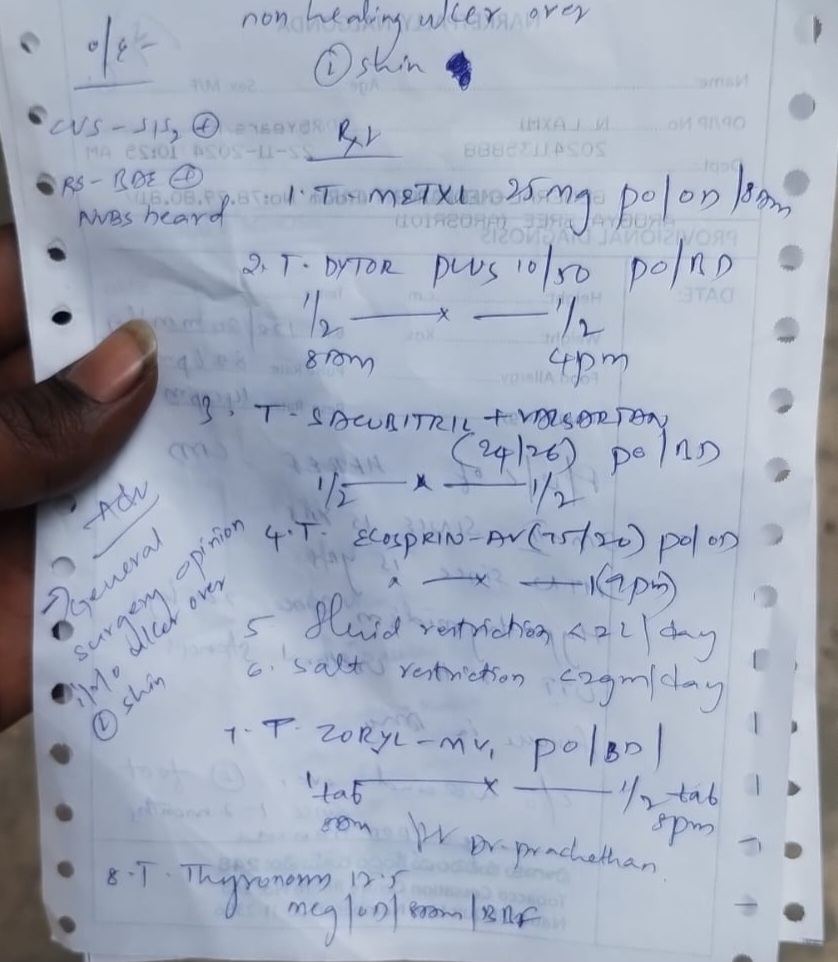 non healing ulcer over
Ⓛ shin
o/e -
CVS - S1S2 ⊕
Rx,
RS - BAE ⊕
NVBS heard
1. T. METXL 25mg po/OD/8am
2. T. DYTOR PLUS 10/50 po/BD
1/2 —— x —— 1/2
8am 4pm
3. T. SACUBITRIL + VALSARTAN
(24/26) po/BD
1/2 —— x —— 1/2
4. T. ECOSPRIN-AV (75/20) po/OD
x —— x —— 1 (9pm)
5. fluid restriction <2L/day
6. salt restriction <2gm/day
7. T. ZORYL-MV, po/BD/
1 tab —— x —— 1/2 tab
8am 8pm
Dr. prachethan
8. T. Thyronorm 12.5
mcg/OD/8am/BBF
Adv
→ General
surgery opinion
i/v/o ulcer over
Ⓛ shin